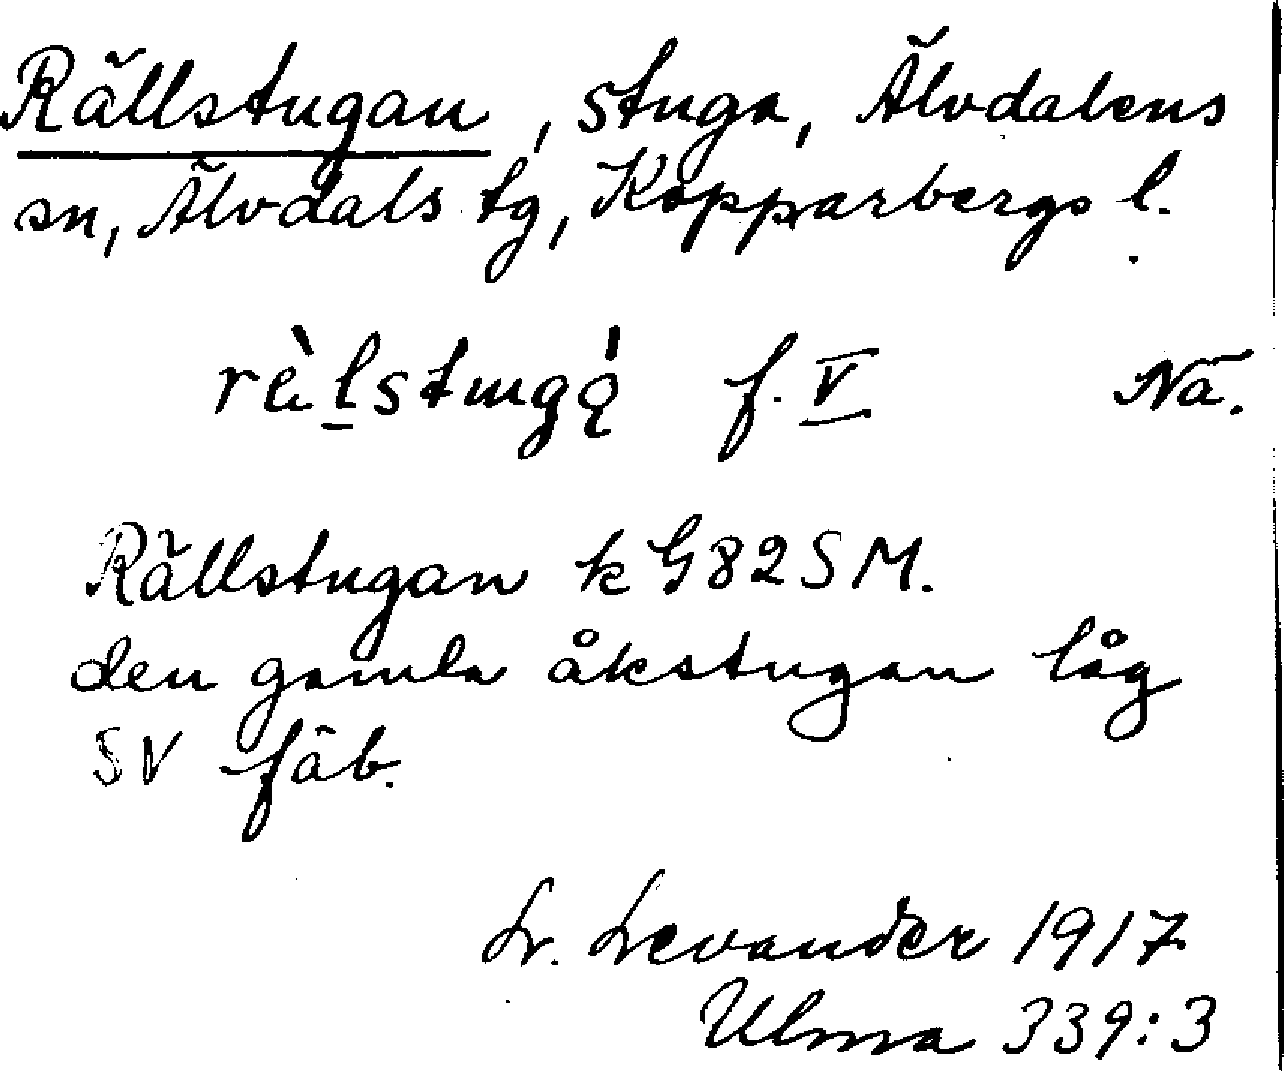 Rällstugan, stuga, Älvdalens
sn, Älvdals tg, Kopparbergs l.
f. V Nä.
Rällstugan k G82SM.
den gamla åkstugan låg
SV fäb.
L. Levander 1917
Ulma 339:3